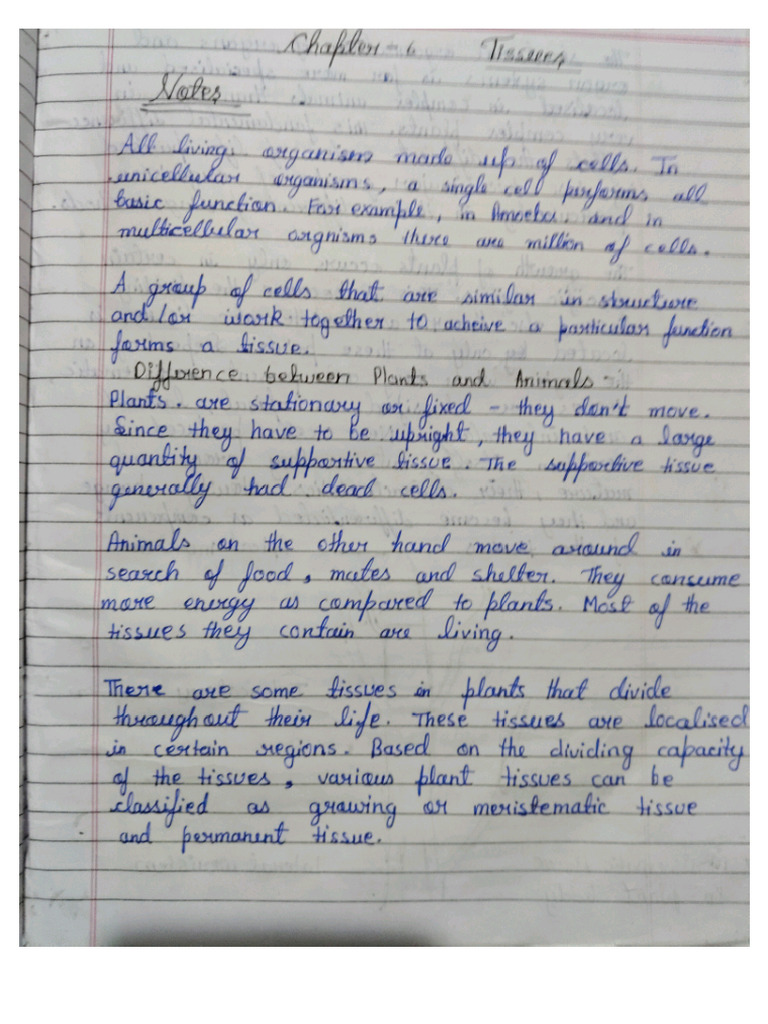 Chapter - 6 Tissues
Notes
All living organism made up of cells. In
unicellular organisms, a single cell performs all
basic function. For example, in Amoeba and in
multicellular orgnisms there are million of cells.
A group of cells that are similar in structure
and/or work together to acheive a particular function
forms a tissue.
Difference between Plants and Animals -
Plants. are stationary or fixed - they don't move.
Since they have to be upright, they have a large
quantity of supportive tissue. The supportive tissue
generally had dead cells.
Animals on the other hand move around in
search of food, mates and shelter. They consume
more energy as compared to plants. Most of the
tissues they contain are living.
There are some tissues in plants that divide
throughout their life. These tissues are localised
in certain regions. Based on the dividing capacity
of the tissues, various plant tissues can be
classified as growing or meristematic tissue
and permanent tissue.